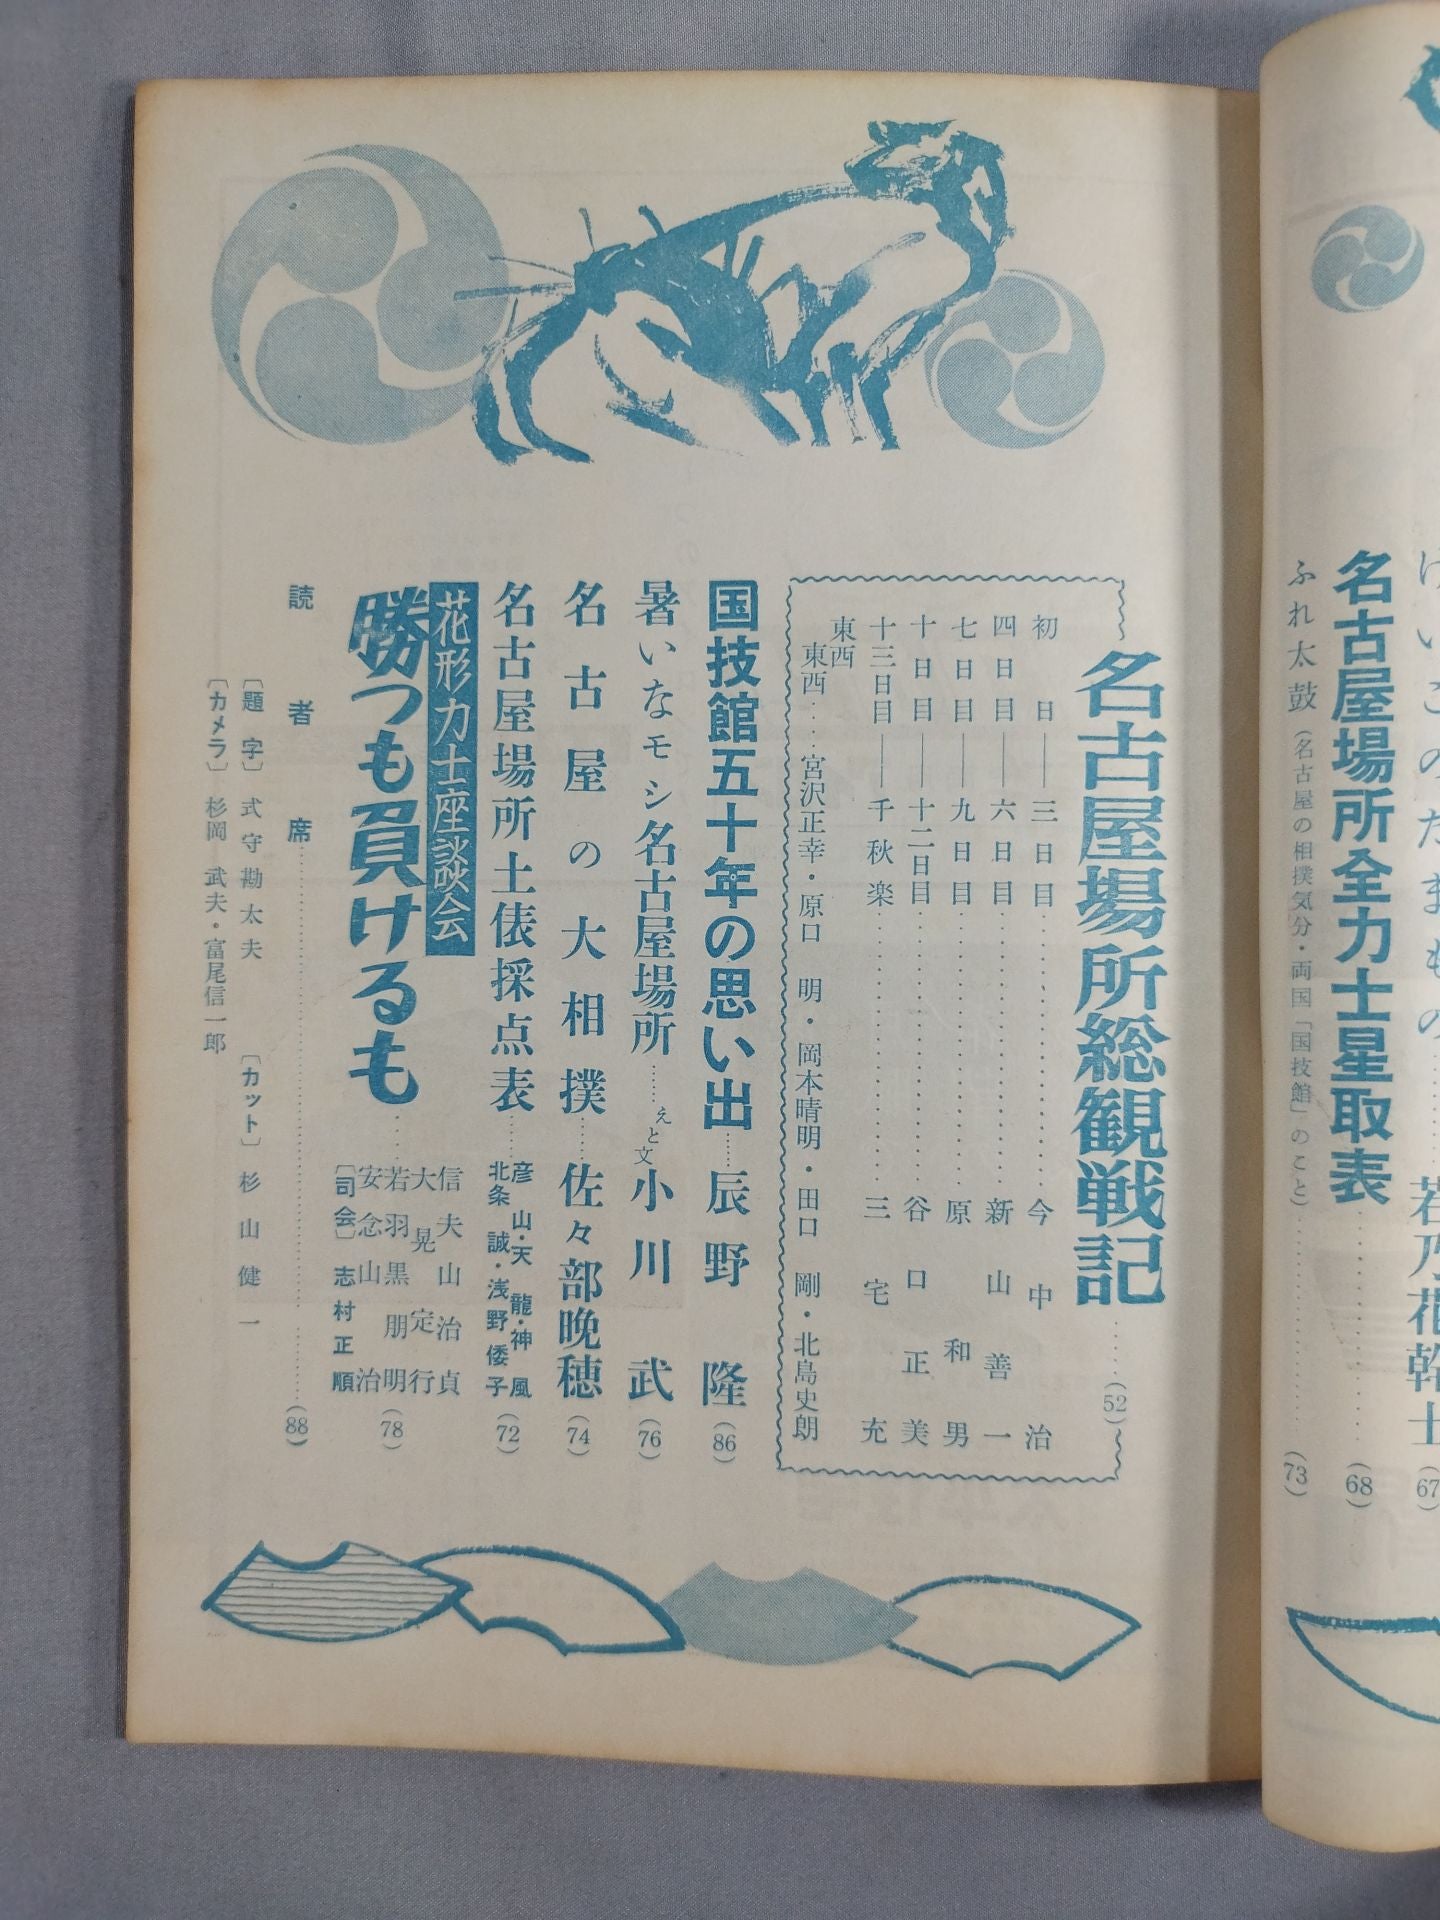 けいこのたまもの……若乃花幹士(67
名古屋場所全力士星取表……(68)
ふれ太鼓(名古屋の相撲気分・両国「国技館」のこと)……(73)
名古屋場所総観戦記……(52)
初日――三日目……今中治
四日目――六日目……新山善一
七日目――九日目……原和男
十日目――十二日目……谷口正美
十三日目――千秋楽……三宅充
東西
東西…宮沢正幸・原口明・岡本晴明・田口剛・北島史朗
国技館五十年の思い出……辰野隆(86)
暑いなモシ名古屋場所……えと文小川武(76)
名古屋の大相撲……佐々部晩穂(74)
名古屋場所土俵採点表……彦山・天龍・神風
北条誠・浅野倭子(72)
花形力士座談会
勝つも負けるも……信夫山治貞
大晃定行
若羽黒朋明
安念山治
〔司会〕志村正順(78)
読者席……(88)
〔題字〕式守勘太夫 〔カット〕杉山健一
〔カメラ〕杉岡武夫・富尾信一郎